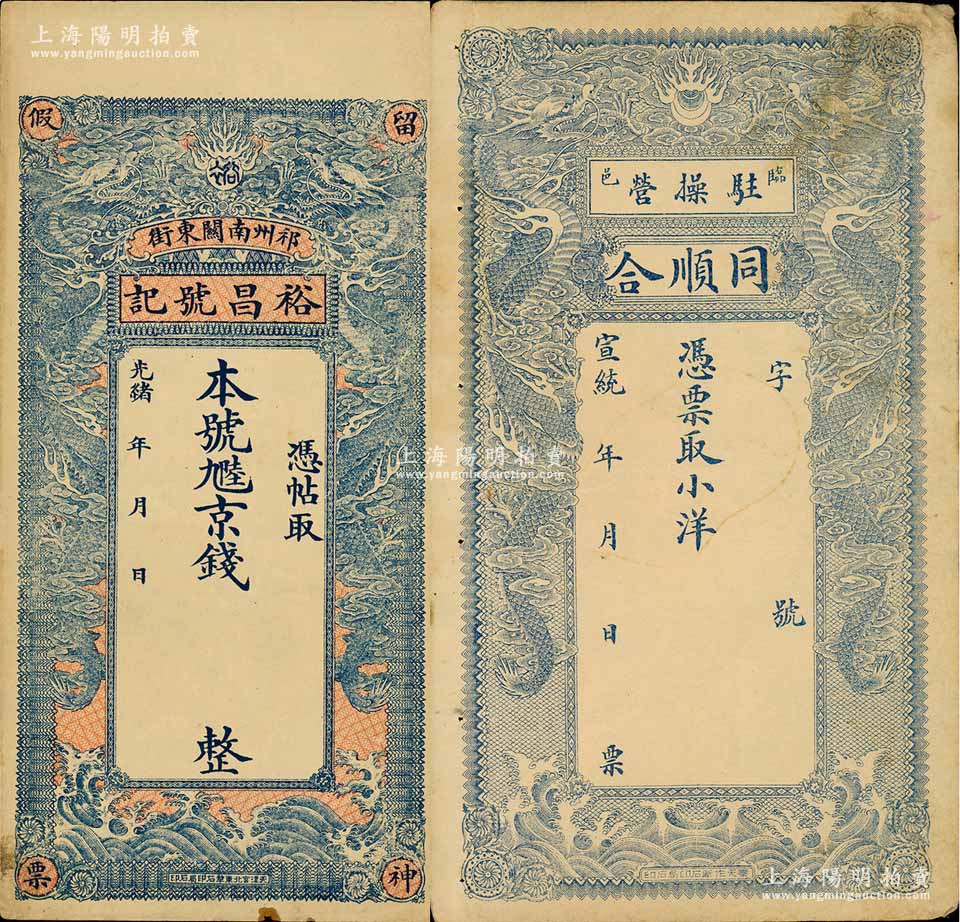 上海陽明拍賣
www.yangmingauction.com
留
假
神
票
裕
祁州南關東街
裕昌號記
憑帖取
本號𠒇京錢
整
光緒 年 月 日
臨邑
駐操營
同順合
字 號
憑票取小洋
宣統 年 月 日 票
上海陽明拍賣
www.yangmingauction.com
上海陽明拍賣
www.yangmingauction.com